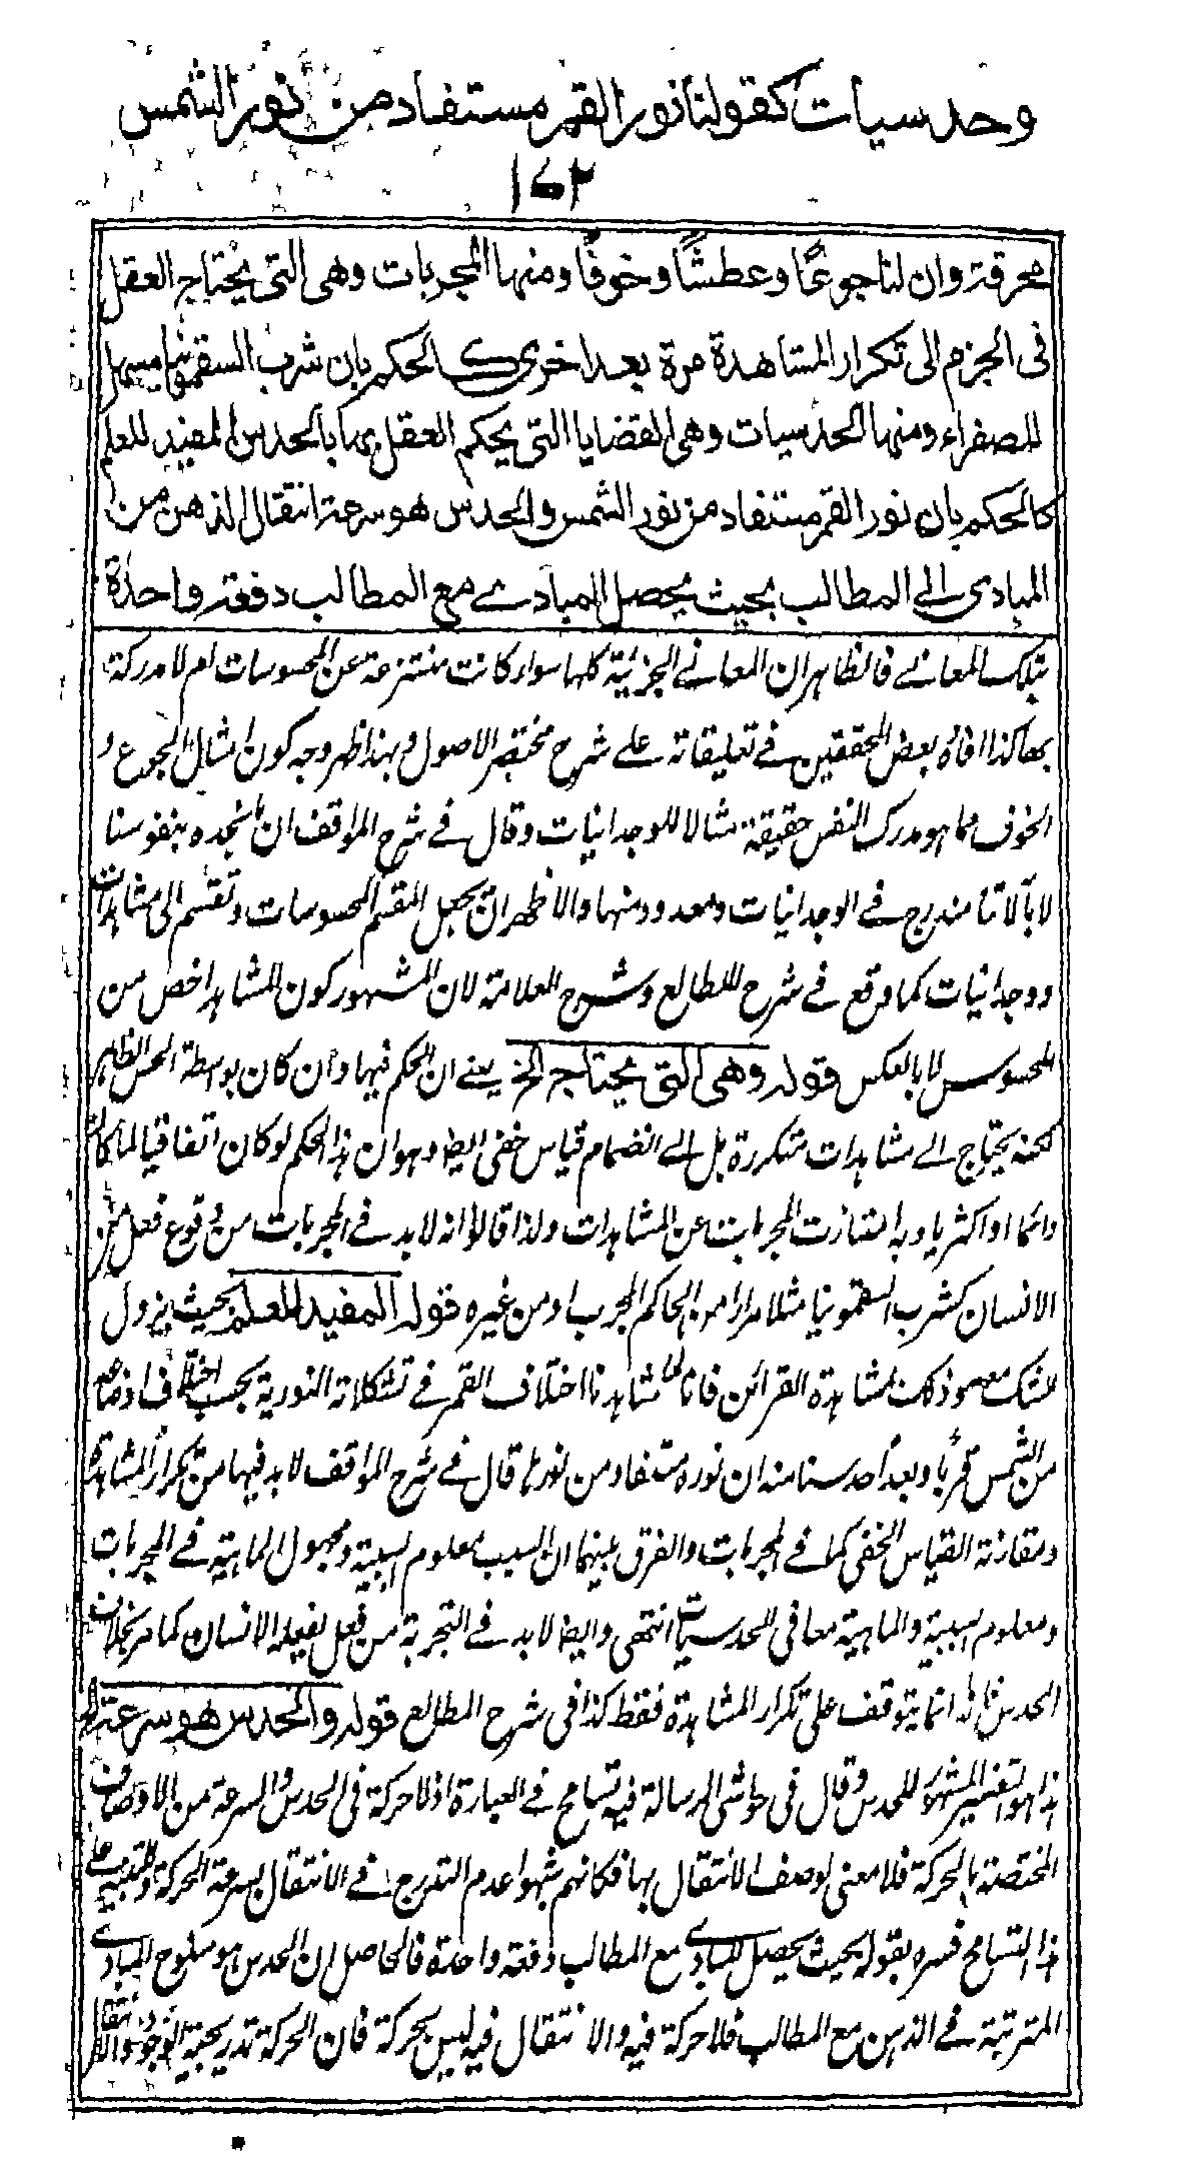 وحدسيات كقولنا نور القمر مستفاد من نور الشمس
١٧٢
محرقة وان لنا جوعًا وعطشًا وخوفًا ومنها المجربات وهى التى يحتاج العقل
فى الجزم الى تكرار المشاهدة مرة بعد اخرى كالحكم بان شرب السقمونيا مسهل
للصفراء ومنها الحدسيات وهى القضايا التى يحكم العقل بها بالحدس المفيد للعلم
كالحكم بان نور القمر مستفاد من نور الشمس والحدس هو سرعة انتقال الذهن من
المبادى الى المطالب بحيث يحصل المبادى مع المطالب دفعة واحدة
بتلك المعانى فالظاهر ان المعانى الجزئية كلها سواء كانت منتزعة عن المحسوسات ام لا مدركة
بها كذا افاده بعض المحققين فى تعليقاته على شرح مختصر الاصول وبهذا ظهر وجه كون امثال الجوع و
الخوف مما هو مدرك النفس حقيقة مثالا للوجدانيات وقال فى شرح المواقف ان ما نجده بنفوسنا
لا بآلاتنا مندرج فى الوجدانيات ومعدود منها والاظهر ان يجعل المقسم المحسوسات وتقسم الى مشاهدات
ووجدانيات كما وقع فى شرح المطالع وشرح العلامة لان المشهور كون المشاهد اخص من
المحسوس لا بالعكس قوله وهى التى يحتاج الخ يعنى ان الحكم فيها وان كان بواسطة الحس الظاهر
لكنه يحتاج الى مشاهدات متكررة بل الى انضمام قياس خفى ايضا وهو ان هذا الحكم لو كان اتفاقيا لما كان
دائما او اكثريا وبه امتازت المجربات عن المشاهدات ولذا قالوا انه لابد فى المجربات من وقوع فعل من
الانسان كشرب السقمونيا مثلا مرارا من الحاكم المجرب او من غيره قوله المفيد للعلم بحيث يزول
الشك معه وذلك لمشاهدة القرائن فانا لما شاهدنا اختلاف القمر فى تشكلاته النورية بحسب اختلاف اوضاعه
من الشمس قربًا وبعدًا حدسنا منه ان نوره مستفاد من نورها قال فى شرح المواقف لابد فيها من تكرار المشاهدة
ومقارنة القياس الخفى كما فى المجربات والفرق بينهما ان السبب معلوم السببية ومجهول الماهية فى المجربات
ومعلوم السببية والماهية معا فى الحدسيات انتهى وايضا لابد فى التجربة من فعل يفعله الانسان كما مر بخلاف
الحدس فانه انما يتوقف على تكرار المشاهدة فقط كذا فى شرح المطالع قوله والحدس هو سرعة الخ
هذا هو التفسير المشهور للحدس وقال فى حواشى الرسالة فيه تسامح فى العبارة اذ لا حركة فى الحدس والسرعة من الاوصاف
المختصة بالحركة فلا معنى لوصف الانتقال بها فكانهم شبهوا عدم التدرج فى الانتقال بسرعة الحركة وللتنبيه على
هذا التسامح فسره بقوله بحيث يحصل المبادى مع المطالب دفعة واحدة فالحاصل ان الحدس هو سنوح المبادى
المترتبة فى الذهن مع المطالب فلا حركة فيه والانتقال فيه ليس بحركة فان الحركة تدريجية الوجود